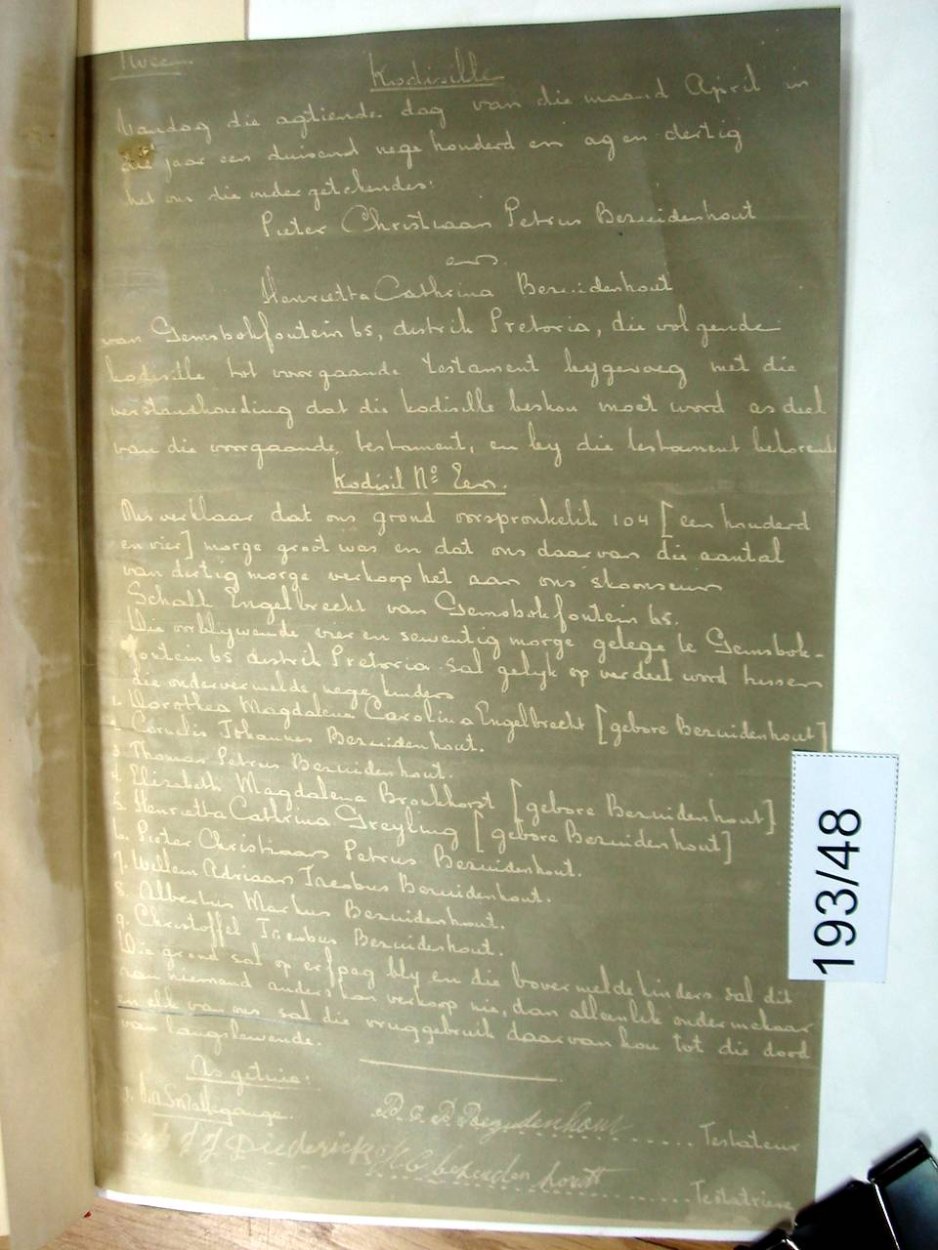 Twee
Kodisille
Vandag die agtiende dag van die maand April in
die jaar een duisend nege honderd en ag en dertig
het ons die ondergetekendes:
Pieter Christiaan Petrus Bezuidenhout
en
Henrietta Cathrina Bezuidenhout
van Gemsbokfontein 65, distrik Pretoria, die volgende
kodisille tot voorgaande testament bygevoeg met die
verstandhouding dat die kodisille beskou moet word as deel
van die voorgaande testament, en by die testament behorend
Kodisil No Een.
Ons verklaar dat ons grond oorspronkelik 104 [een honderd
en vier] morge groot was en dat ons daarvan die aantal
van dertig morge verkoop het aan ons skoonseun
Schalk Engelbrecht van Gemsbokfontein 65.
Die oorblywende vier en sewentig morge gelege te Gemsbok-
fontein 65 distrik Pretoria sal gelyk op verdeel word tussen
die ondervermelde nege kinders
1. Dorothea Magdalena Carolina Engelbrecht [gebore Bezuidenhout]
2. Cornelis Johannes Bezuidenhout.
3. Thomas Petrus Bezuidenhout.
4. Elizabeth Magdalena Bronkhorst [gebore Bezuidenhout]
5. Henrietta Cathrina Greyling [gebore Bezuidenhout]
6. Pieter Christiaan Petrus Bezuidenhout.
7. Willem Adriaan Jacobus Bezuidenhout.
8. Albertus Markus Bezuidenhout.
9. Christoffel Jacobus Bezuidenhout.
Die grond sal op erfpag bly en die bovermelde kinders sal dit
aan niemand anders kan verkoop nie, dan alleenlik onder mekaar
en elk van ons sal die vruggebruik daarvan hou tot die dood
van langslewende.
As getuie:
P. C. P. Bezuidenhout Testateur
J J Diedericks H C bezuidenhoutt Testatriese
193/48